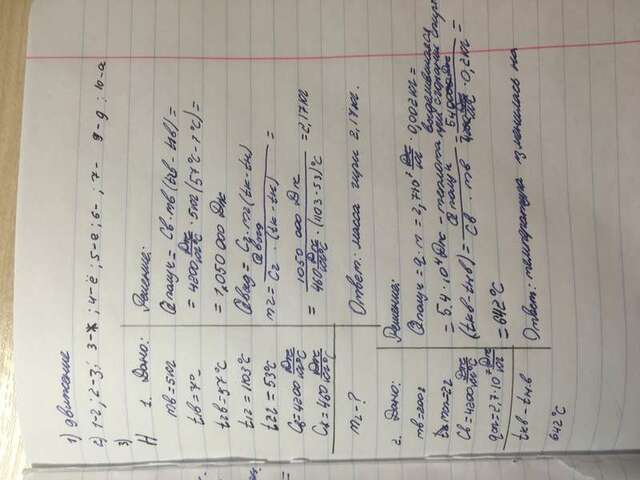 1) движение
2) 1-г; 2-з; 3-ж; 4-ё; 5-е; 6- ; 7- 9-д; 10-а
3)
1. Дано:
mв=5кг
t1в=7°
t2в=57°C
t1г=1103°C
t2г=53°C
Cв=4200 Дж/кг°C
Cж=460 Дж/кг°C
mг-?
Решение:
Qполуч = Cв·mв(t2в-t1в)=
=4200 Дж/кг°C · 5кг(57°C-7°C)=
=1,050 000 Дж
Qвыд=Cг·mг(tк-tн)
mг= Qвыд / Cг·(tк-tн) =
= 1050 000 Дж / 460 Дж/кг°C ·(1103-53)°C =2,17кг
Ответ: масса гири 2,17кг.
2. Дано:
mв=200г
mсп=2г
Cв=4200 Дж/кг°C
qсп=2,7·10⁷ Дж/кг
tкв-tнв
642°C
Решение:
Qполуч=q·m=2,7·10⁷ Дж/кг · 0,002кг=
=5.4·10⁴Дж - теплота выделившаяся при сгорании спирта
(tкв-tнв)= Qполуч / Cв·mв = 54000Дж / 4200 Дж/кг · 0,2кг =
=642°C
Ответ: температура изменилась на